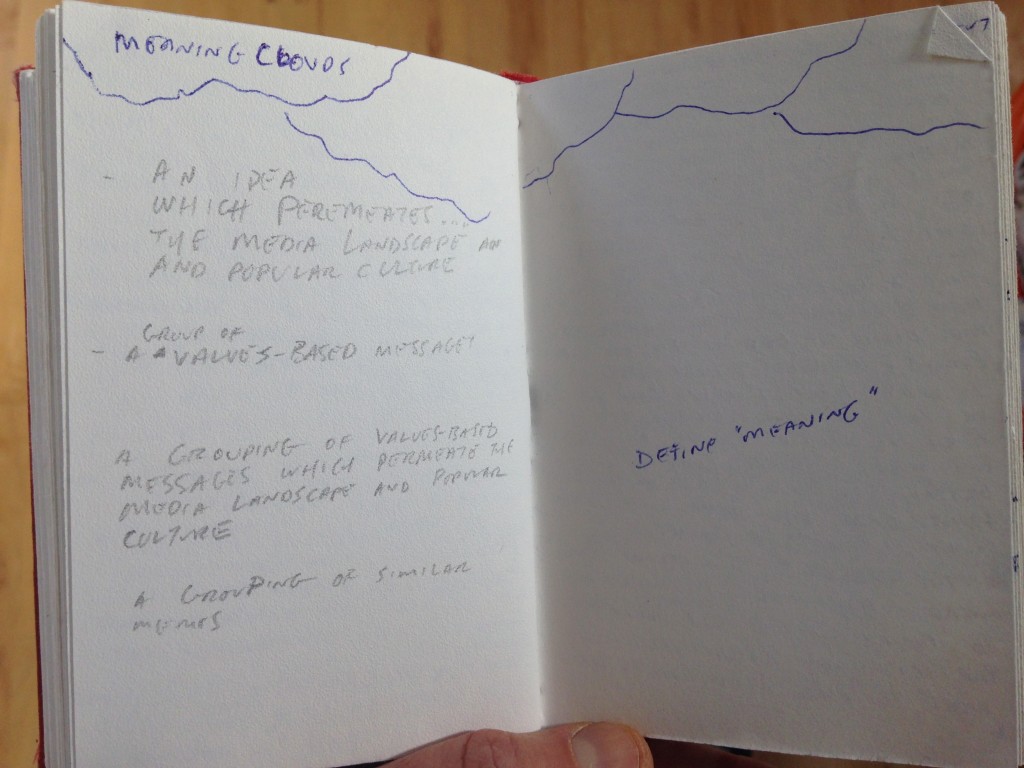 MEANING CLOUDS
- AN IDEA
WHICH PEREMEATES...
THE MEDIA LANDSCAPE AN
AND POPULAR CULTURE
GROUP OF
- A VALUES-BASED MESSAGES
A GROUPING OF VALUES-BASED
MESSAGES WHICH PERMEATE THE
MEDIA LANDSCAPE AND POPULAR
CULTURE
A GROUPING OF SIMILAR
MEMES
DEFINE "MEANING"